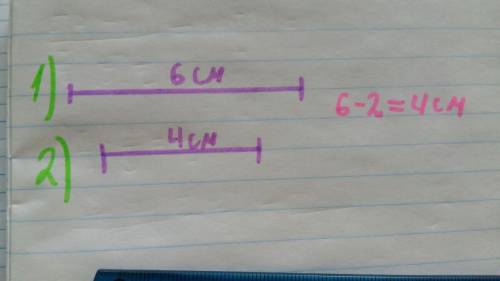 1) 6 см
6-2=4 см
2) 4 см